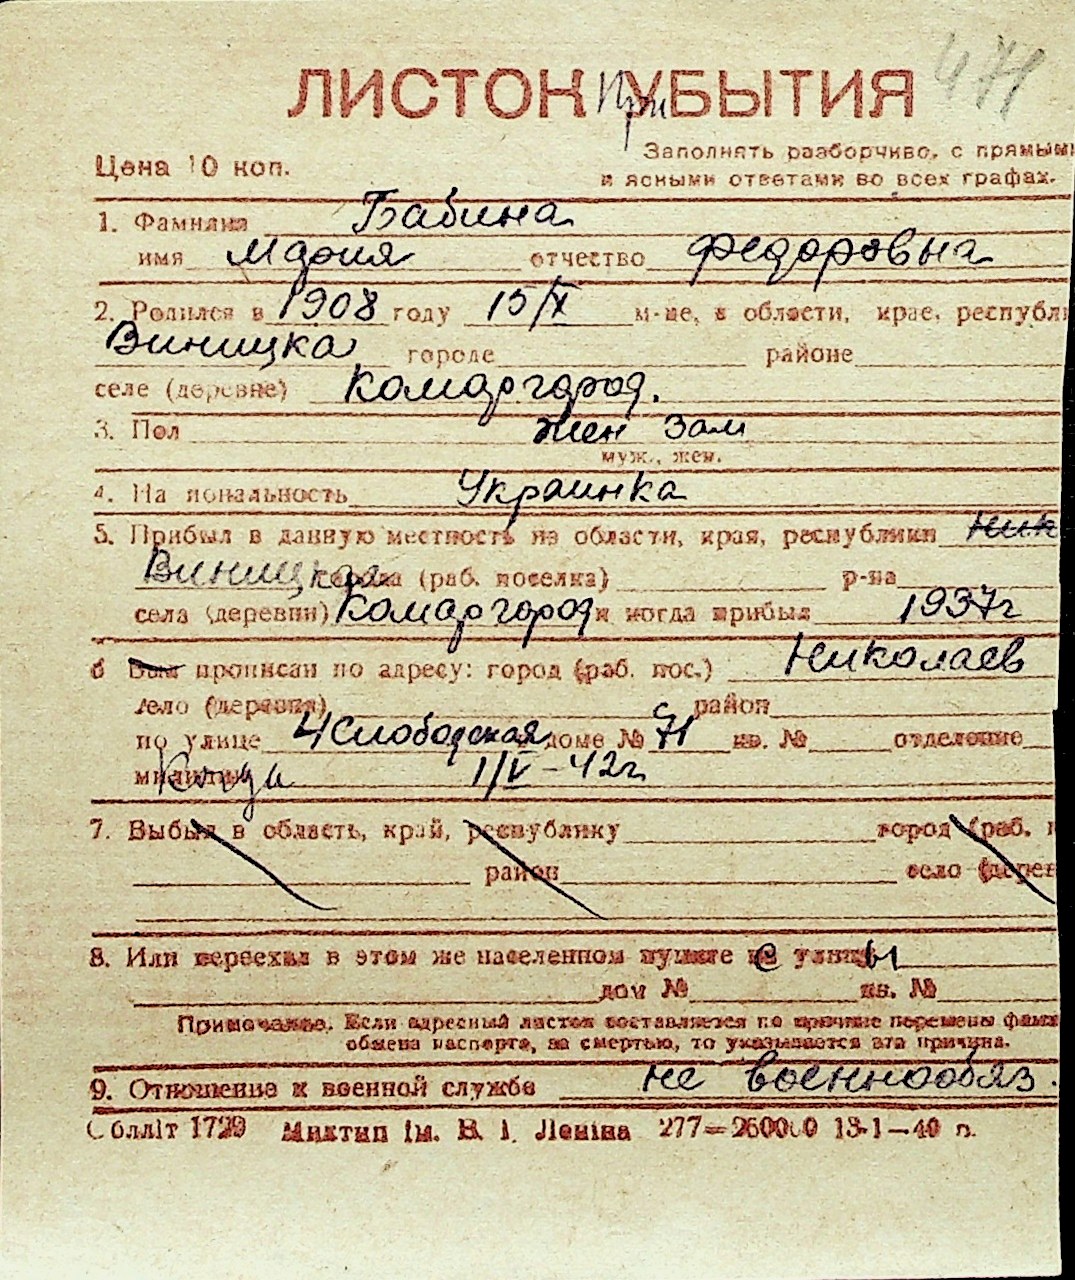 471
ЛИСТОК При УБЫТИЯ
Цена 10 коп.
Заполнять разборчиво, с прямыми
и ясными ответами во всех графах.
1. Фамилия Бабина
имя Мария отчество Федоровна
2. Родился в 1908 году 15/X м-це, в области, крае, республи
Виницка городе районе
селе (деревне) Комаргород.
3. Пол жен Зам
муж., жен.
4. На иональность Украинка
5. Прибыл в данную местность из области, края, республики Ник
Виницкая города (раб. поселка) р-на
села (деревни) Комаргород и когда прибыл 1937г
6 Был прописан по адресу: город (раб. пос.) Николаев
село (деревня) район
по улице 4 Слободская доме № 71 кв. № отделение
милиции 1/V-42г
7. Выбыл в область, край, республику город (раб. п
район село (дерев
8. Или переехал в этом же населенном пункте с улицы
дом № кв. №
Примечание. Если адресный листок составляется по причине перемены фами
обмена паспорта, за смертью, то указывается эта причина.
9. Отношение к военной службе не военнообяз.
Облліт 1729 Миктип ім. В. І. Леніна 277—260000 13-1—40 р.